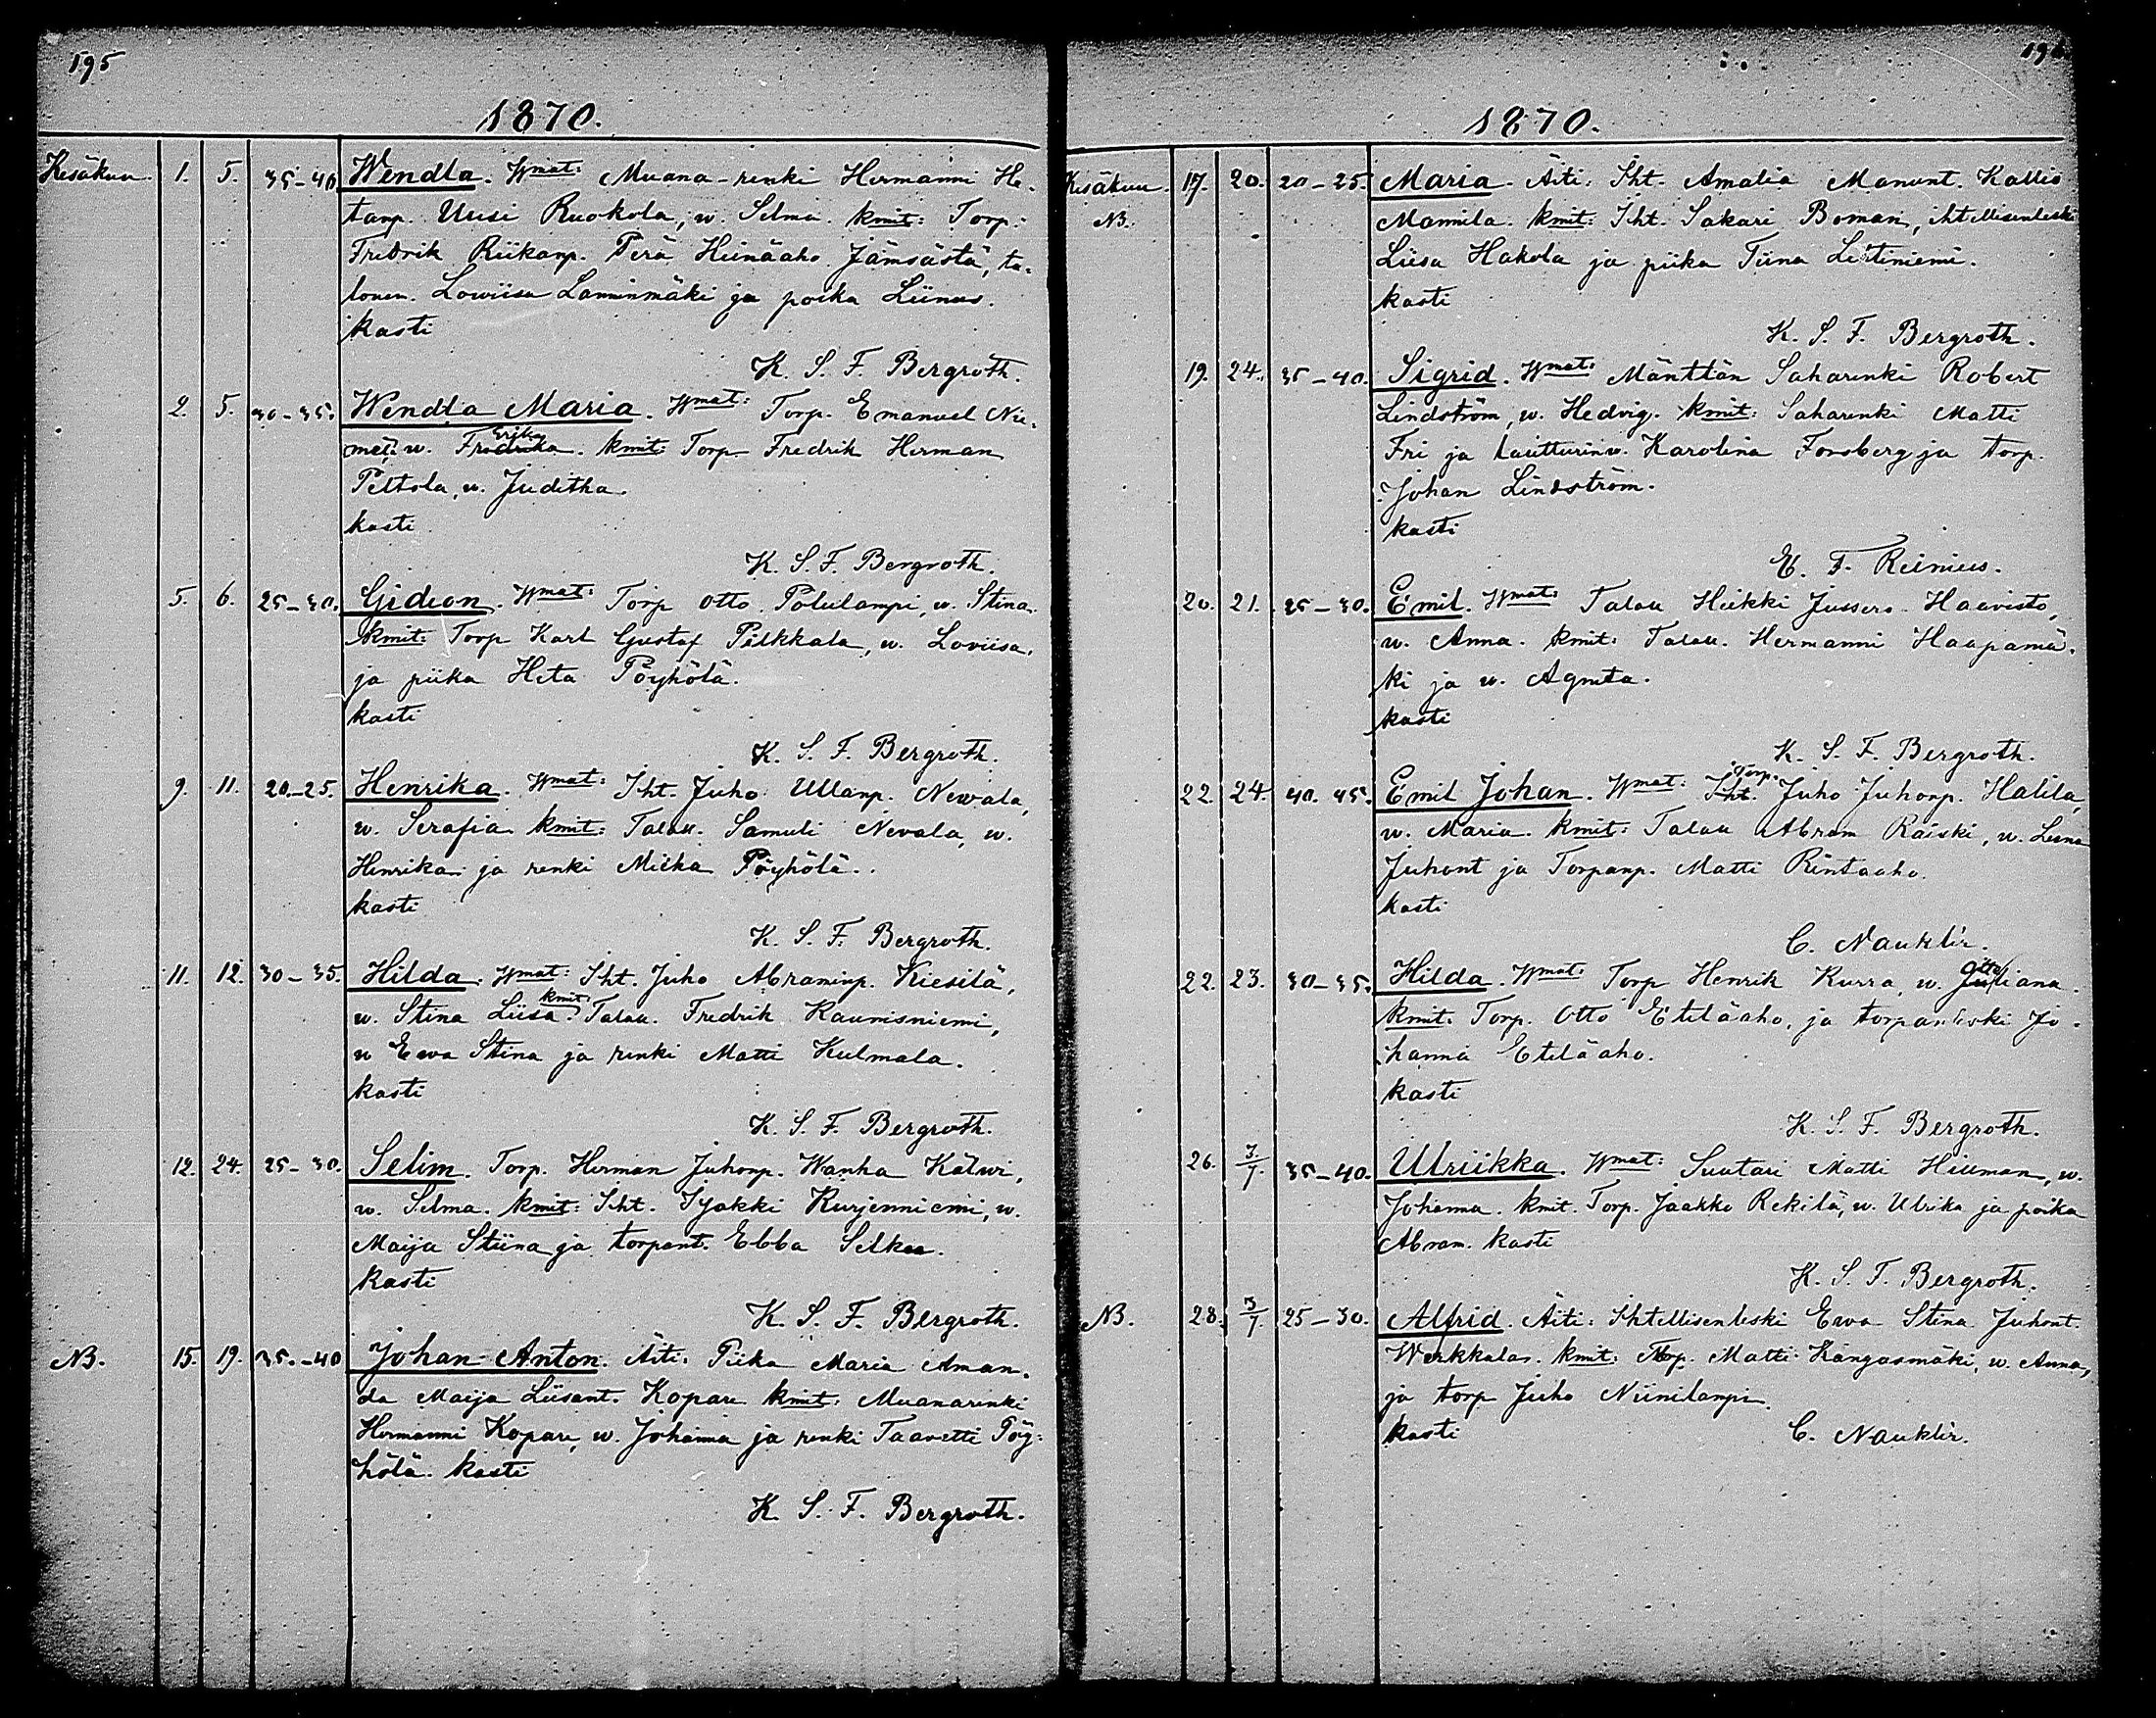 195
1870.
Kesäkuu. 1. 5. 35-40 Wendla. Wmat: Muana-renki Hermanni He-
tanp. Uusi Ruokola, w. Selma. kmit: Torp.
Fredrik Riikanp. Perä Heinäaho Jämsästä, ta-
lonem. Lowiisa Lamminmäki ja poika Liinus.
kasti
K. S. F. Bergroth.
2. 5. 30-35. Wendla Maria. Wmat: Torp. Emanuel Nie-
mei, w. Fredrika Erika. kmit: Torp Fredrik Herman
Peltola, w. Juditha.
kasti
K. S. F. Bergroth.
5. 6. 25-30. Gideon. Wmat: Torp Otto Polulampi, w. Stina.
kmit: Torp Karl Gustaf Pälkkala, w. Loviisa,
ja piika Heta Pöyhölä.
kasti
K. S. F. Bergroth.
9. 11. 20-25. Henrika. Wmat: Iht. Juho Ullanp. Newala,
w. Serafia. kmit: Talau. Samuli Nevala, w.
Henrika ja renki Miika Pöyhölä.
kasti
K. S. F. Bergroth.
11. 12. 30-35. Hilda. Wmat: Iht. Juho Abraminp. Kiesilä,
w. Stina Liisa. kmit: Talau. Fredrik Raunisniemi,
w Ewa Stina ja renki Matti Kulmala.
kasti
K. S. F. Bergroth.
12. 24. 25-30. Selim. Torp. Herman Juhonp. Wanha Kälwi,
w. Selma. kmit: Iht. Iyakki Kurjenniemi, w.
Maija Stiina ja torpant. Ebba Selkee.
kasti
K. S. F. Bergroth.
NB. 15. 19. 35.-40 Johan Anton. Äiti: Piika Maria Aman-
da Maija Liisant. Kopare kmit: Muanarenki
Hermanni Kopare, w. Johanna ja renki Taavetti Pöy-
hölä. kasti
K. S. F. Bergroth.
196
1870.
Kesäkuu. 17. 20. 20-25. Maria. Äiti: Iht. Amalia Manunt. Kallio
NB. Mannila. kmit: Iht. Sakari Boman, ihtellisenleski
Liisa Hakola ja piika Tiina Lištiniemi.
kasti
K. S. F. Bergroth.
19. 24. 35-40. Sigrid. Wmat: Mänttän Saharenki Robert
Lindström, w. Hedvig. kmit: Saharenki Matti
Fri ja lautturinw. Karolina Forsberg ja torp.
Johan Lindström.
kasti
E. F. Reinius.
20. 21. 25-30. Emil. Wmat: Talau Heikki Jussero-Haavisto,
w. Anna. kmit: Talau. Hermanni Haapamä-
ki ja w. Agneta.
kasti
K. S. F. Bergroth.
22. 24. 40-45. Emil Johan. Wmat: Iht. Torp. Juho Juhonp. Halila,
w. Maria. kmit: Talau Abram Raiski, w. Leena
Juhont ja Torpanp. Matti Rintaaho.
kasti
C. Nauklér.
22. 23. 30-35. Hilda. Wmat: Torp Henrik Kurra, w. Juliana.
kmit: Torp. Otto Eteläaho, ja torpanleski Jo-
hanna Eteläaho.
kasti
K. S. F. Bergroth.
26. 3/7 35-40. Ulriikka. Wmat: Suutari Matti Hillman, w.
Johanna. kmit. Torp. Jaakko Rekilä, w. Ulrika ja poika
Abram. kasti
K. S. F. Bergroth.
NB. 28. 3/7 25-30. Alfrid. Äiti: Ihtellisenleski Ewa Stina Juhont.
Werkkalas. kmit: Torp. Matti Kangasmäki, w. Anna,
ja torp Juho Niinilampi.
kasti C. Nauklér.